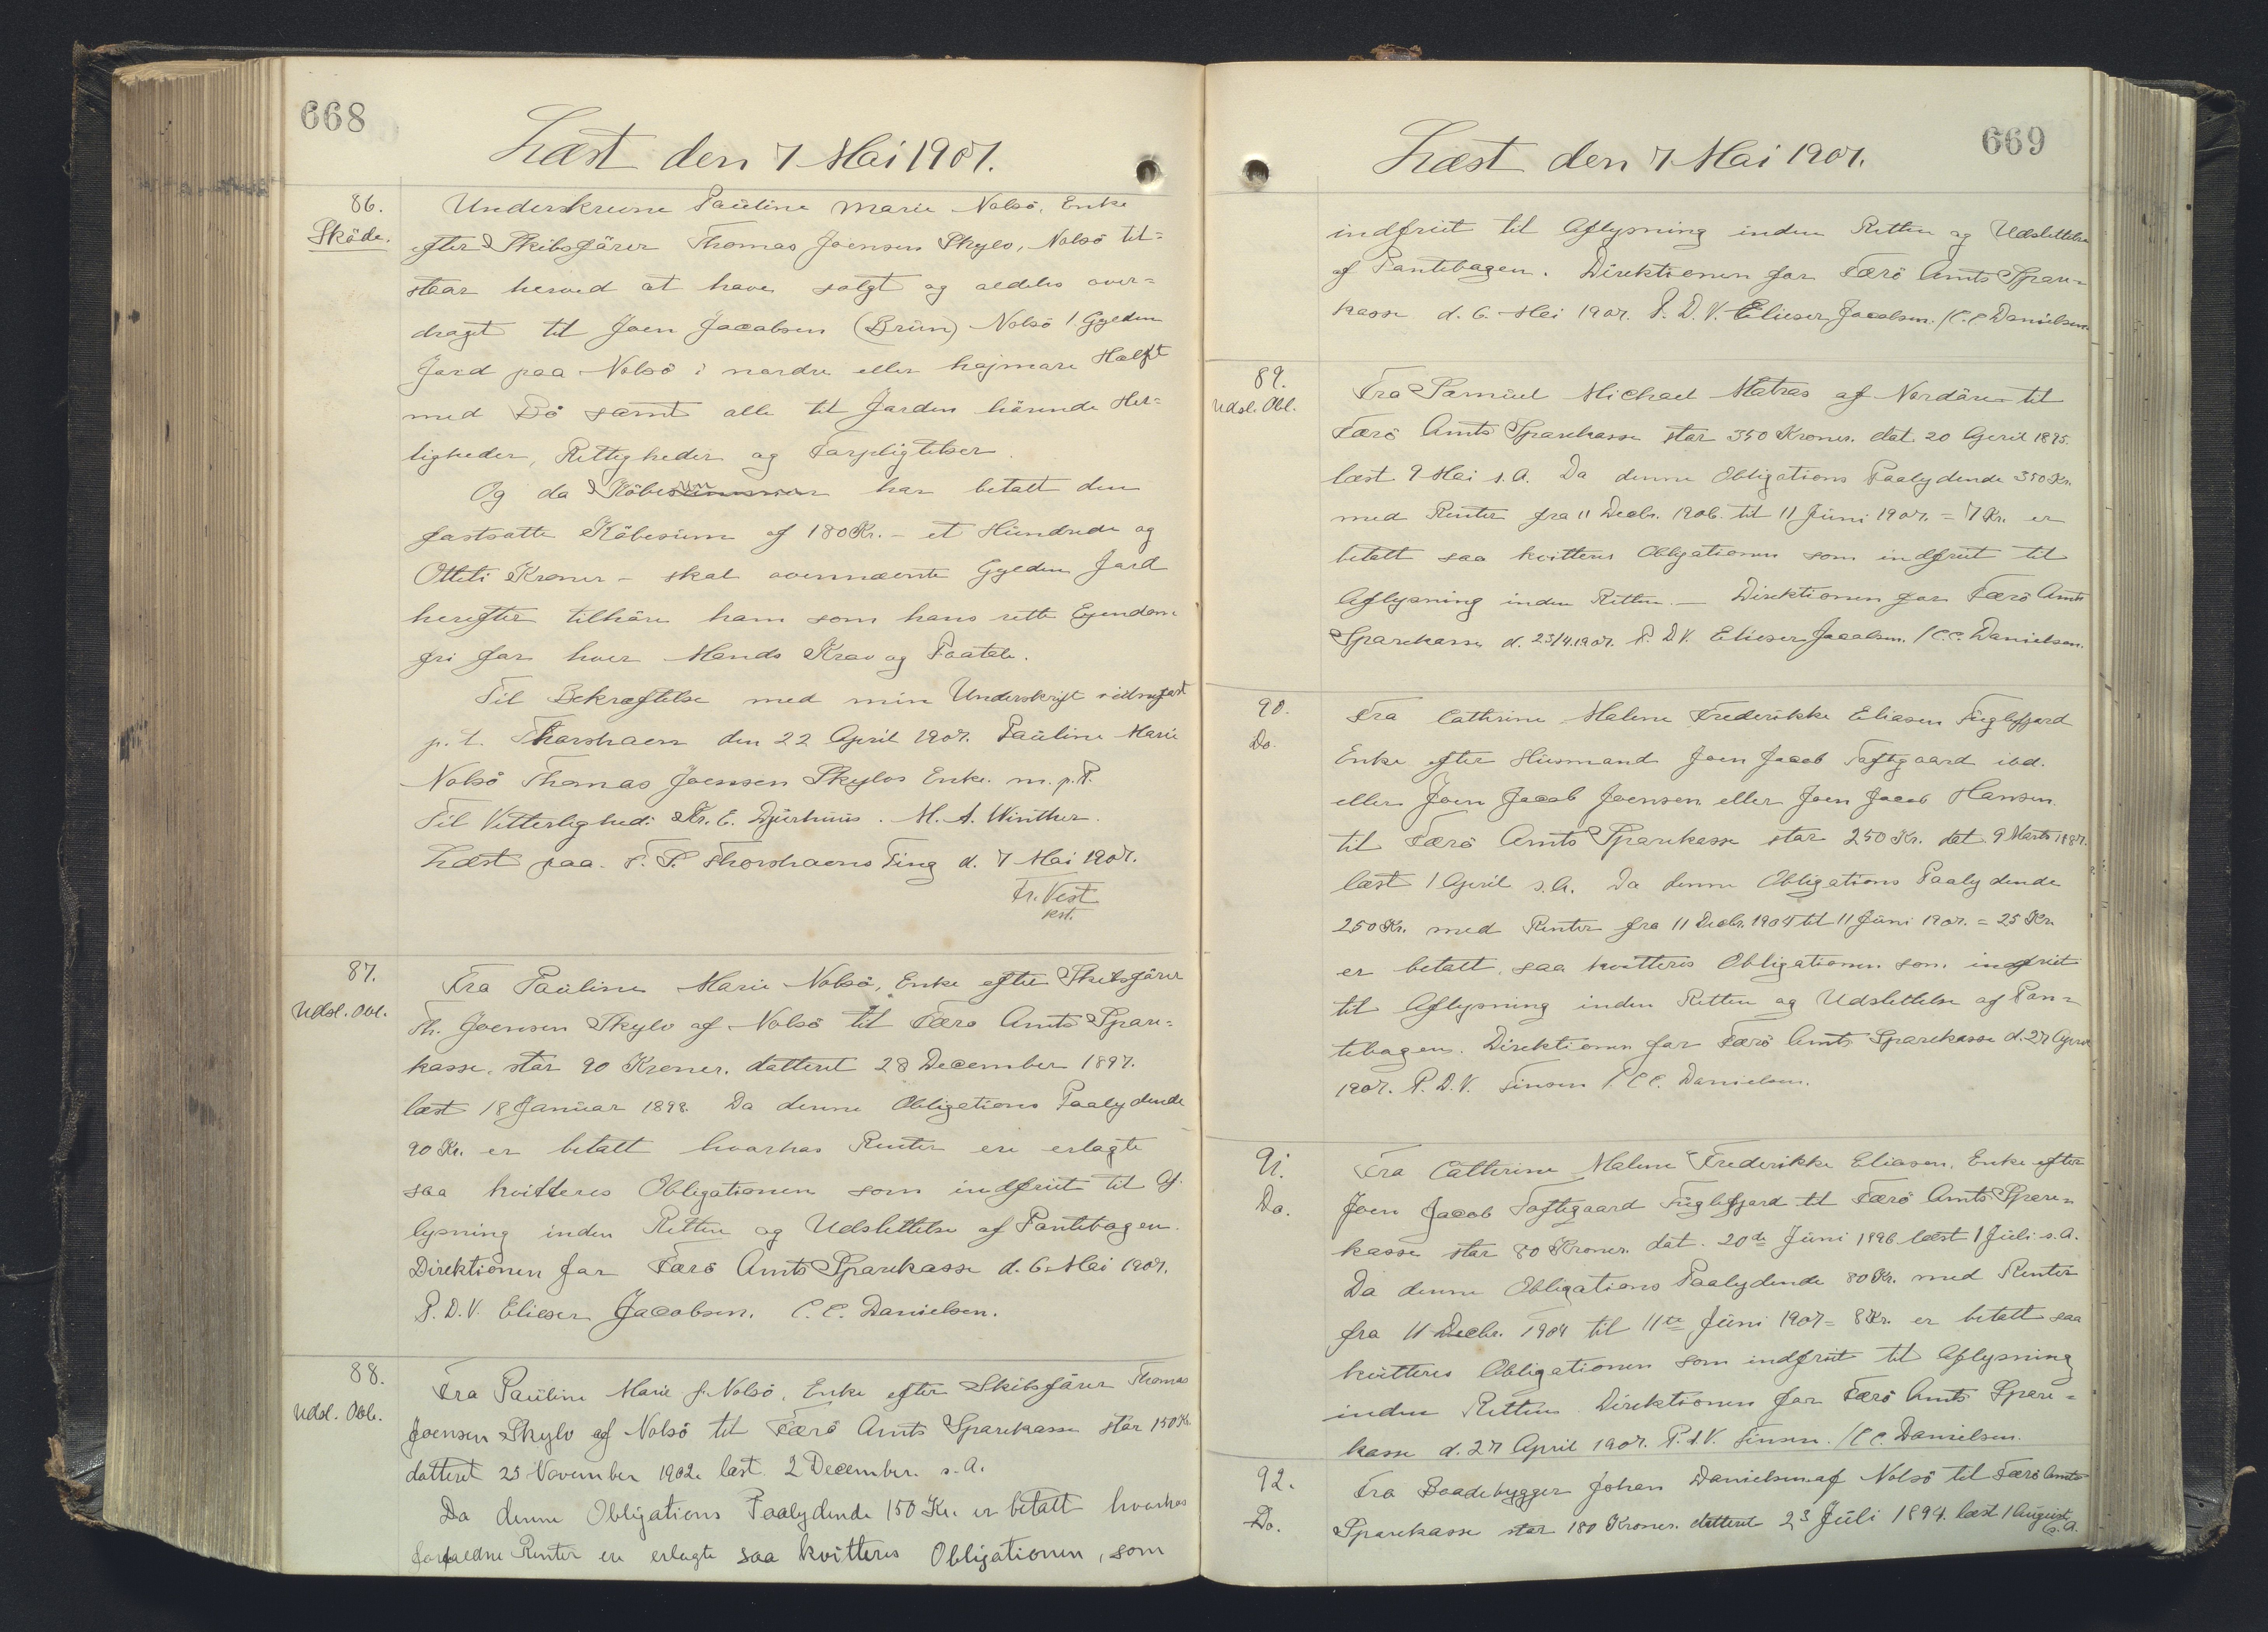 668
Læst den 7 Mai 1907.
86.
Sköde.
Underskrevne Pauline Marie Nolsö, Enke
efter Skibsförer Thomas Joensen Skylv, Nolsö til=
staar herved at have solgt og aldeles over=
dragt til Joen Jacobsen (Brün) Nolsö 1 Gylden
Jord paa Nolsö i nordre eller hajmare Halft
med Bö samt alle til Jorden hörende Her=
ligheder, Rettigheder og Forpligtelser.
Og da Köberen har betalt den
fastsatte Köbesum af 180 Kr. - et Hundrede og
Otteti Kroner - skal ovennævnte Gylden Jord
herefter tilhöre ham som hans rette Ejendom
fri for hver Mands Krav og Paatale.
Til Bekræftelse med min Underskrift vidnefast
p. t. Thorshavn den 22 April 1907. Pauline Marie
Nolsö Thomas Joensen Skylvs Enke. m. p. P.
Til Vitterlighed: Kr. E. Djurhuus. M. A. Winther.
Læst paa F. S. Thorshavns Ting d. 7 Mai 1907.
Fr. Vest
kst.
87.
Udsl. Obl.
Fra Pauline Marie Nolsö, Enke efter Skibsförer
Th. Joensen Skylv af Nolsö til Færö Amts Spare=
kasse, stor 90 Kroner. datteret 28 December 1897.
læst 18 Januar 1898. Da denne Obligations Paalydende
90 Kr. er betalt hvorhos Renter ere erlagte
saa kvitteres Obligationen som indfriet til Af
lysning inden Retten og Udslettelse af Pantebogen.
Direktionen for Færö Amts Sparekasse d. 6. Mai 1907.
P. D. V. Elieser Jacobsen. C. C. Danielsen.
88.
Udsl. Obl.
Fra Pauline Marie f. Nolsö, Enke efter Skibsförer Thomas
Joensen Skylv af Nolsö til Færö Amts Sparekasse stor 150 Kr.
datteret 25 November 1902. læst 2 December. s. A.
Da denne Obligations Paalydende 150 Kr. er betalt hvorhos
forfaldne Renter ere erlagte saa kvitteres Obligationen, som
669
Læst den 7 Mai 1907.
indfriet til Aflysning inden Retten og Udslettelse
af Pantebogen. Direktionen for Færö Amts Spare=
kasse d. 6. Mai 1907. P. D. V. Elieser Jacobsen. / C. C. Danielsen
89.
Udsl. Obl.
Fra Samuel Michael Matras af Nordöre til
Færö Amts Sparekasse stor 350 Kroner. dat. 20 April 1895.
læst 9 Mai s. A. Da denne Obligations Paalydende 350 Kr.
med Renter fra 11 Decbr. 1906 til 11 Juni 1907. = 7 Kr. er
betalt saa kvitteres Obligationen som indfriet til
Aflysning inden Retten. — Direktionen for Færö Amts
Sparekasse d. 23/4.1907. P. D. V. Elieser Jacobsen. / C. C. Danielsen.
90.
Do.
Fra Cathrine Malene Frederikke Eliasen Fuglefjord
Enke efter Husmand Joen Jacob Toftgaard ibd.
eller Joen Jacob Joensen eller Joen Jacob Hansen
til Færö Amts Sparekasse stor 250 Kr. dat. 9 Marts 1887.
læst 1 April s. A. Da denne Obligations Paalydende
250 Kr. med Renter fra 11 Decbr. 1904 til 11 Juni 1907. = 25 Kr.
er betalt, saa kvitteres Obligationen som indfriet
til Aflysning inden Retten og Udslettelse af Pan=
tebogen. Direktionen for Færö Amts Sparekasse d. 27 April
1907. P. D. V. Finsen / C. C. Danielsen.
91.
Do.
Fra Cathrine Malene Frederikke Eliasen, Enke efter
Joen Jacob Toftegaard Fuglefjord til Færö Amts Spare=
kasse stor 80 Kroner dat. 20de Juni 1896 læst 1 Juli s. A.
Da denne Obligations Paalydende 80 Kr. med Renter
fra 11 Decbr. 1904 til 11te Juni 1907 = 8 Kr. er betalt saa
kvitteres Obligationen som indfriet til Aflysning
inden Retten. Direktionen for Færö Amts Spare=
kasse d. 27 April 1907. P. D. V. Finsen. / C. C. Danielsen.
92.
Do.
Fra Baadebygger Johan Danielsen af Nolsö til Færö Amts
Sparekasse stor 180 Kroner. datteret 23 Juli 1894. læst 1 August
s. A.